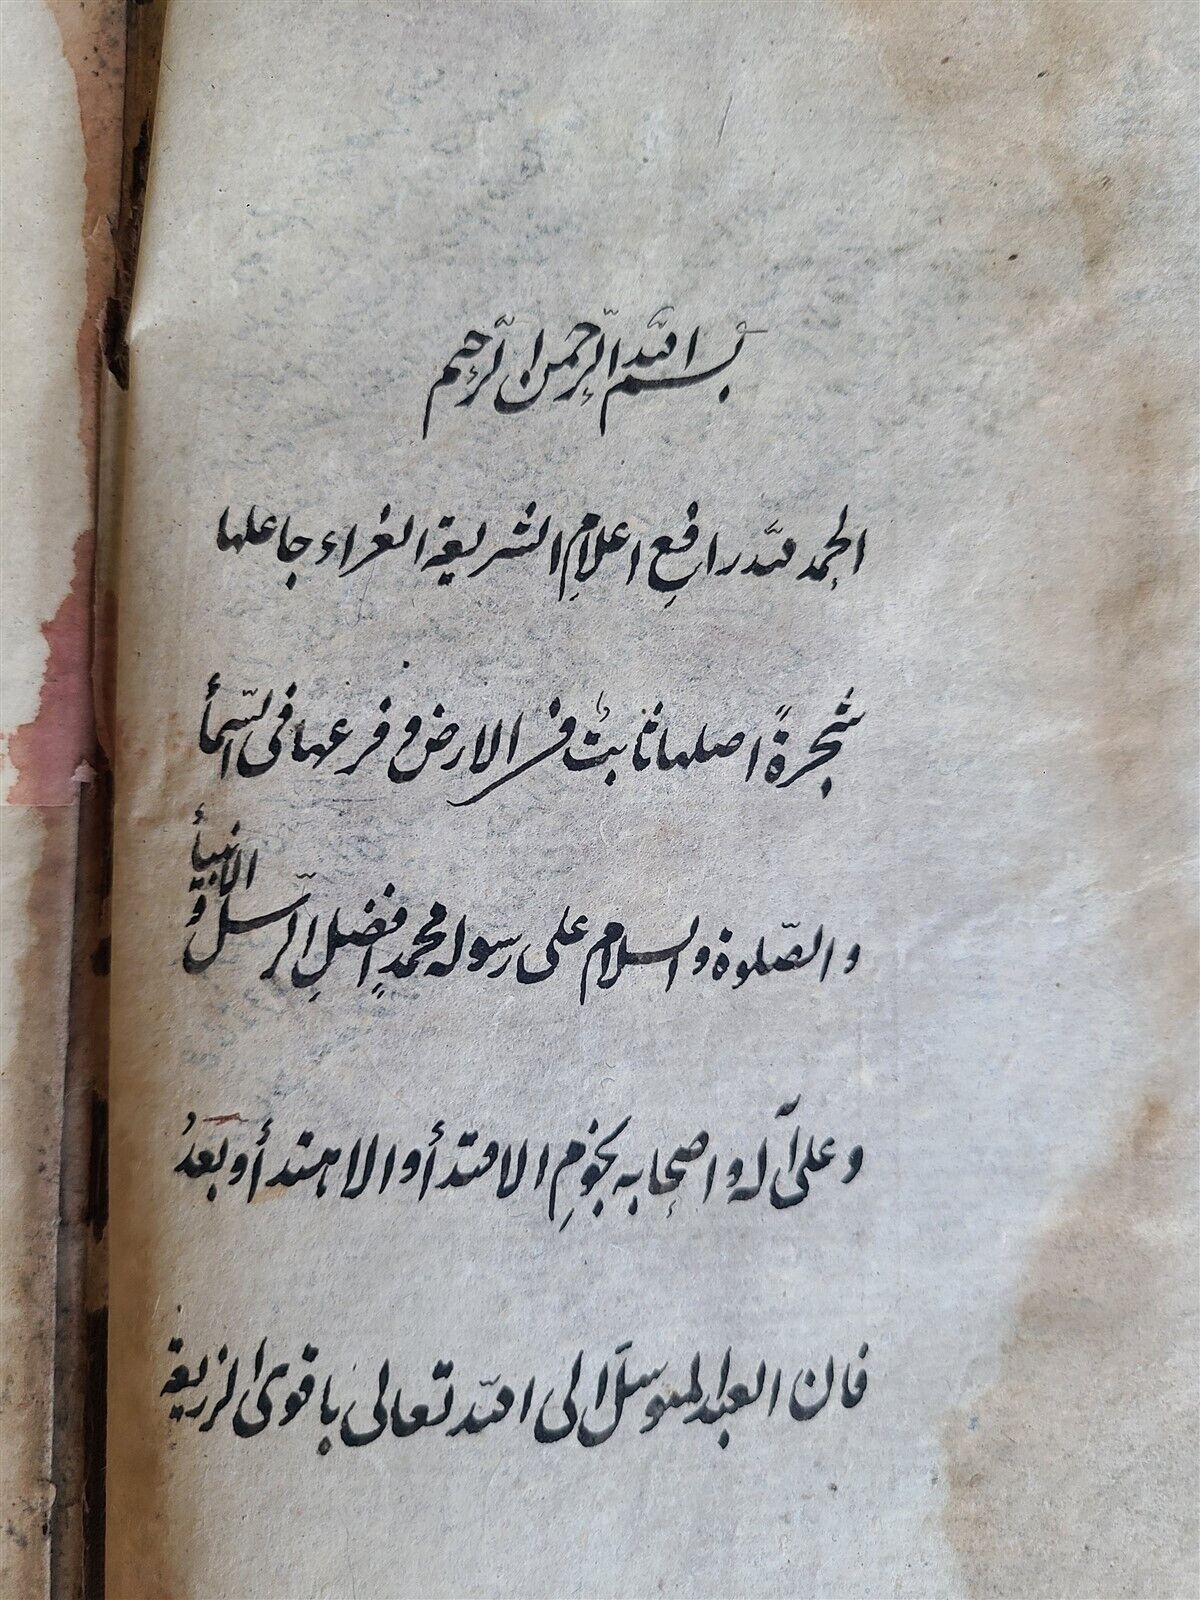 بسم الله الرحمن الرحيم
الحمد لله رافع اعلام الشريعة الغراء جاعلها
شجرةً اصلها ثابت فى الارض و فرعها فى السّمأ
و الصّلوة و السلام على رسوله محمدٍ افضلِ الرّسل و الانبيأ
و على آله و اصحابه نجومِ الاقتدأ و الاهتدأ و بعدُ
فان العبد المتوسل الى الله تعالى باقوى الزريعة